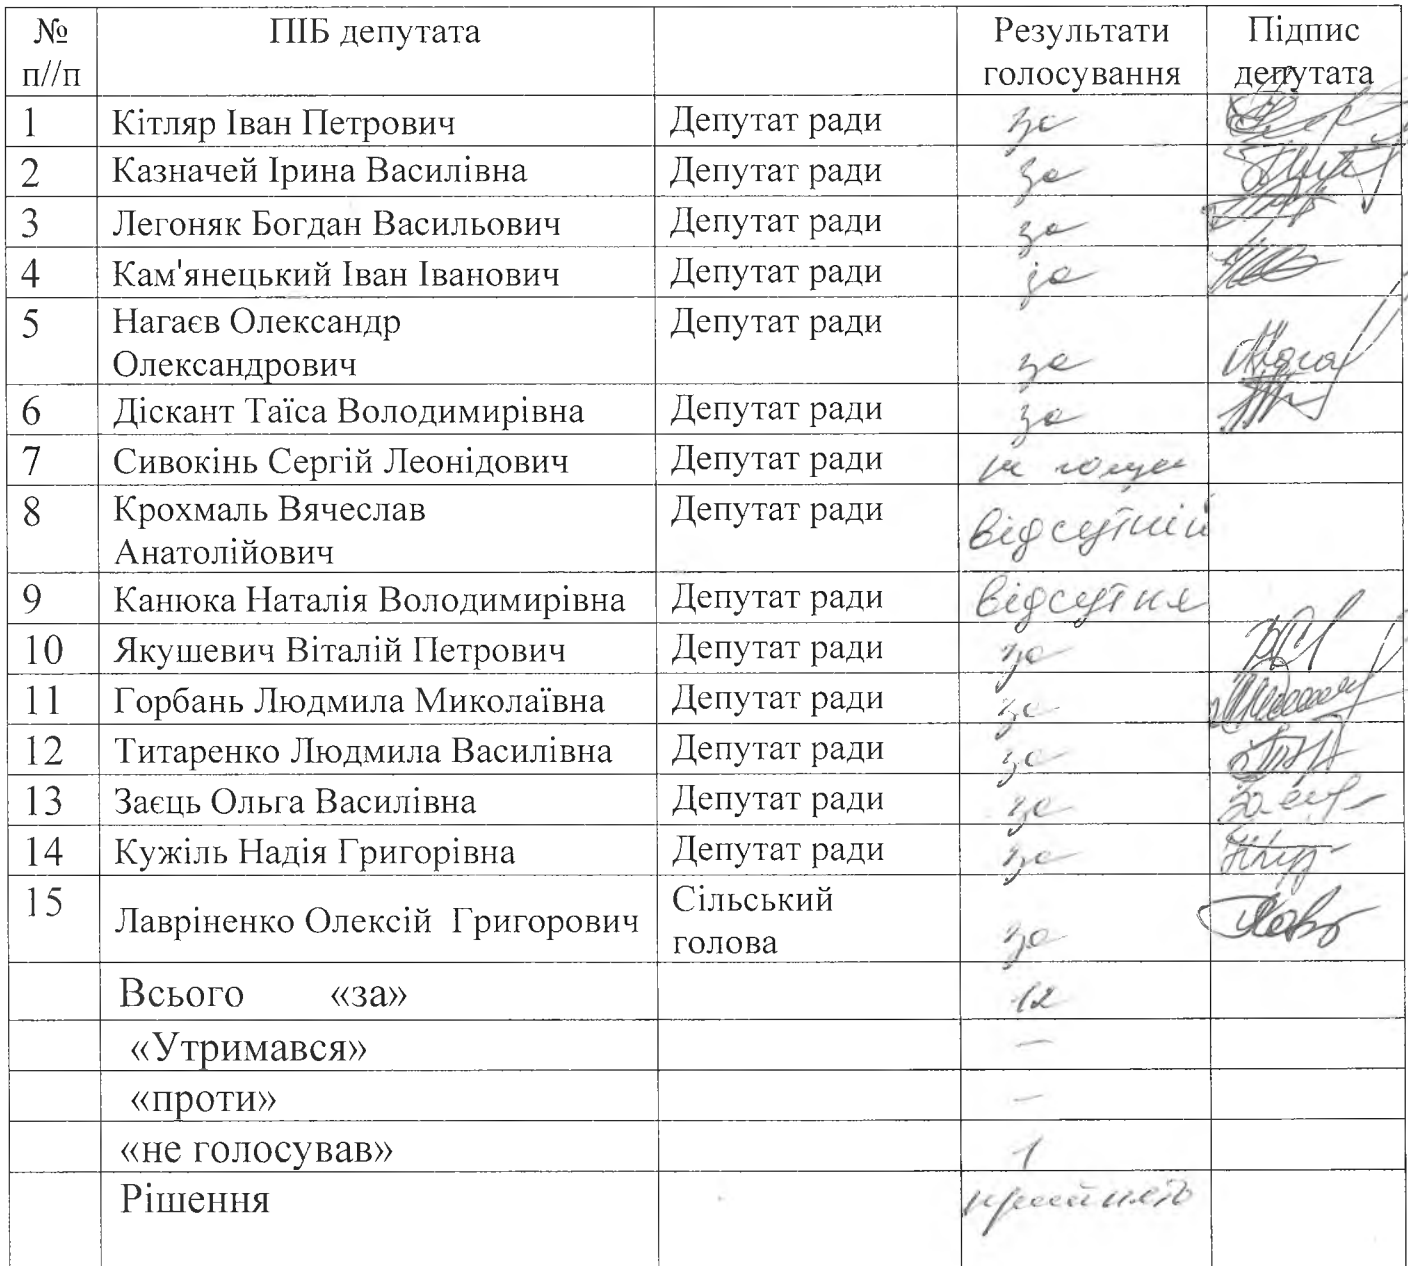 № п//п ПІБ депутата Результати голосування Підпис депутата
1 Кітляр Іван Петрович Депутат ради за
2 Казначей Ірина Василівна Депутат ради за
3 Легоняк Богдан Васильович Депутат ради за
4 Кам'янецький Іван Іванович Депутат ради за
5 Нагаєв Олександр Олександрович Депутат ради за
6 Діскант Таїса Володимирівна Депутат ради за
7 Сивокінь Сергій Леонідович Депутат ради
8 Крохмаль Вячеслав Анатолійович Депутат ради відсутній
9 Канюка Наталія Володимирівна Депутат ради відсутня
10 Якушевич Віталій Петрович Депутат ради за
11 Горбань Людмила Миколаївна Депутат ради за
12 Титаренко Людмила Василівна Депутат ради за
13 Заєць Ольга Василівна Депутат ради за
14 Кужіль Надія Григорівна Депутат ради за
15 Лавріненко Олексій Григорович Сільський голова за
Всього «за» 12
«Утримався» —
«проти» —
«не голосував» 1
Рішення прийнято